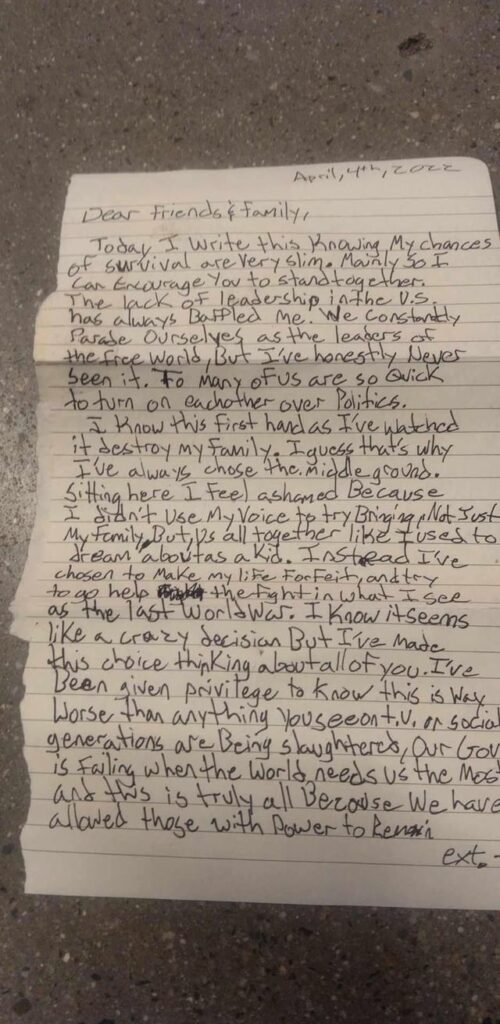 April, 4th, 2022
Dear Friends & Family,
Today I Write this Knowing My chances
of survival are Very slim. Mainly so I
Can Encourage You to stand together.
The lack of leadership in the U.S.
has always Baffled Me. We Constantly
Parade Ourselves as the leaders of
the free World, But I've honestly Never
Seen it. To Many of us are so Quick
to turn on eachother over Politics.
I Know this first hand as I've watched
it destroy my family. I guess that's why
I've always chose the Middle ground.
Sitting here I feel ashamed Because
I didn't Use My Voice to try Bringing, Not Just
My family, But, Us all together like I used to
dream about as a Kid. Instead I've
chosen to Make my life Forfeit, and try
to go help the fight in what I see
as the last World War. I Know it seems
like a crazy decision But I've Made
this choice thinking about all of you. I've
Been given privilege to Know this is Way
Worse than anything You see on t.v. or social
generations are Being slaughtered, Our Gov
is Failing when the World, needs us the Most
and this is truly all Because We have
allowed those with Power to Remain
ext. -